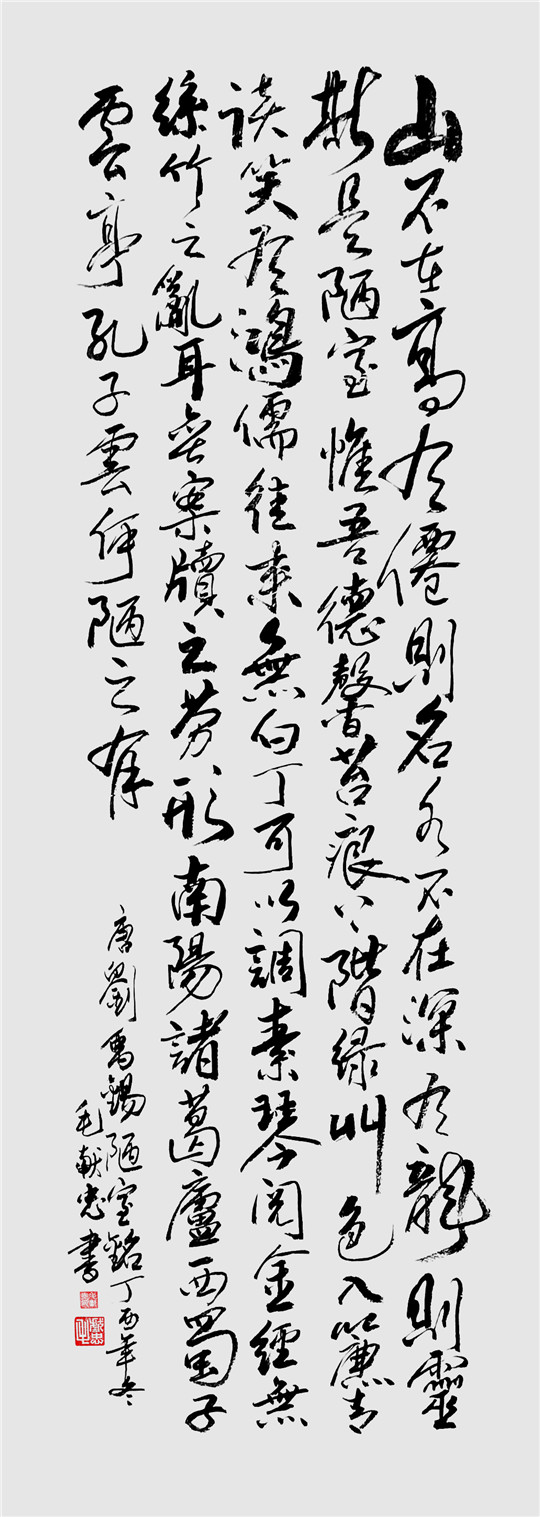 山不在高有僊則名水不在深有龍則靈
斯是陋室惟吾德馨苔痕上階緑艸色入簾青
談笑有鴻儒往來無白丁可以調素琴閱金經無
絲竹之亂耳無案牘之勞形南陽諸葛廬西蜀子
雲亭孔子雲何陋之有
唐劉禹錫陋室銘丁酉年冬
毛献忠書